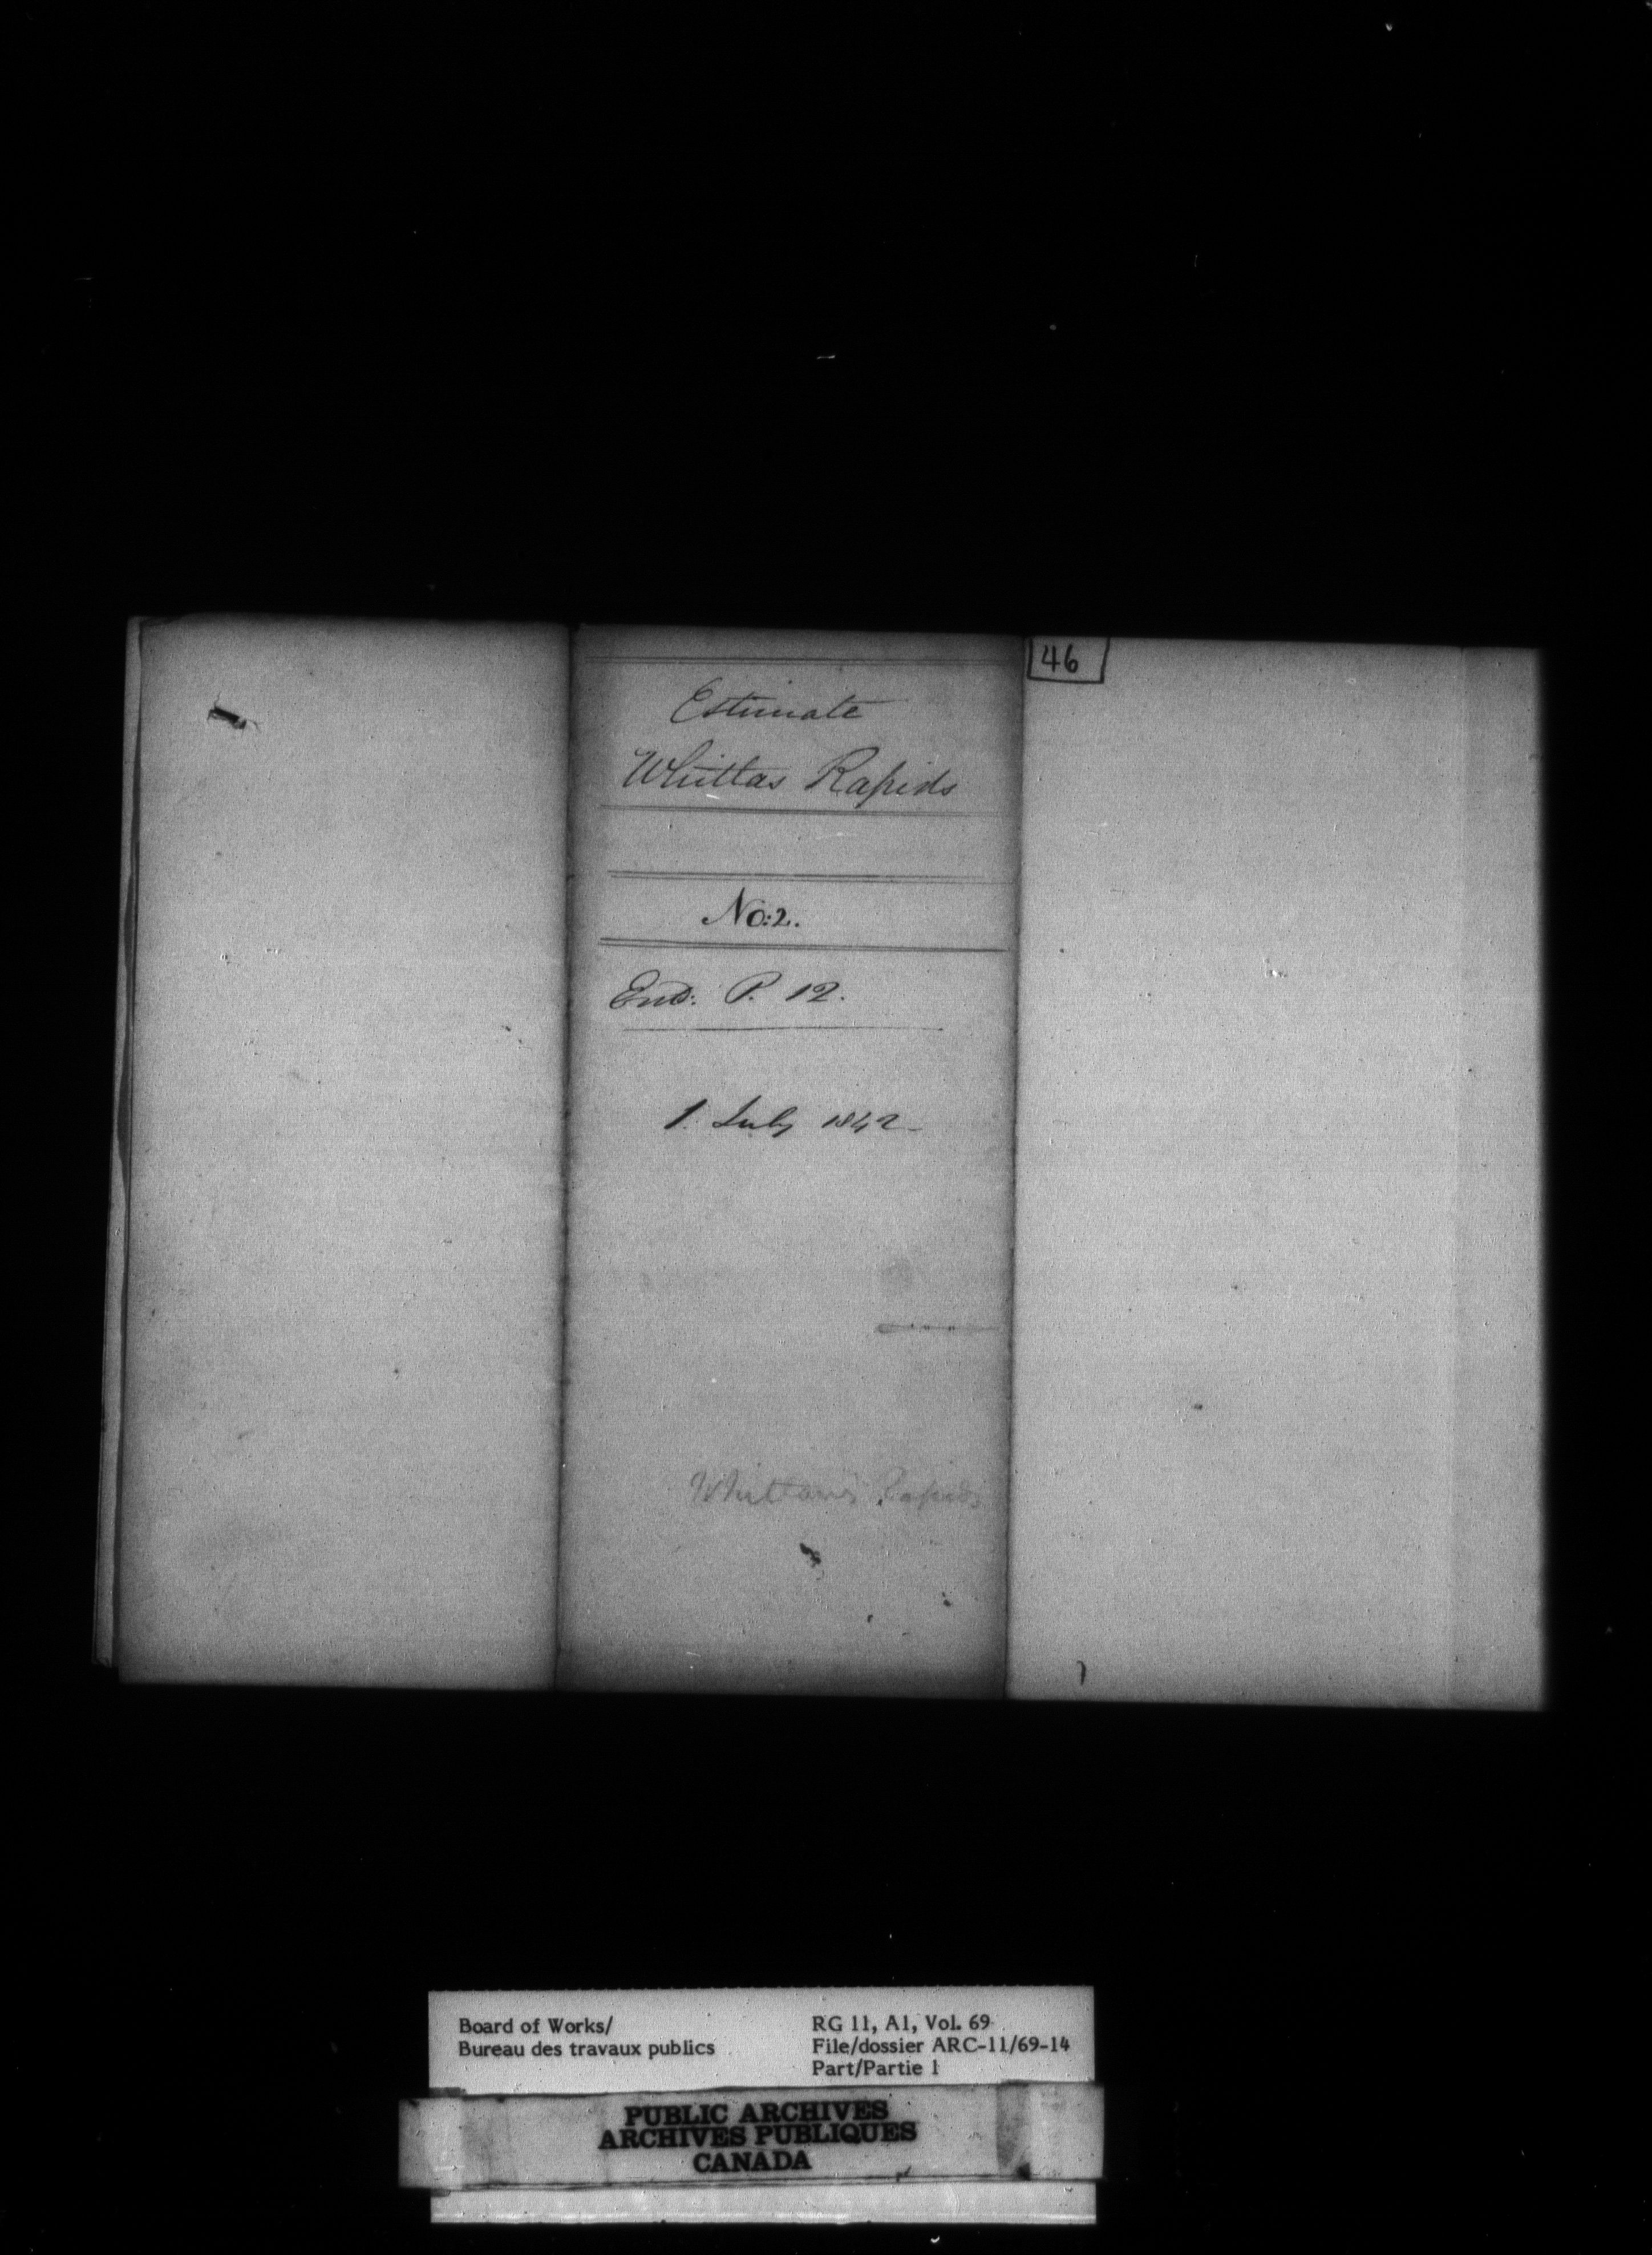 46
Estimate
Whittas Rapids
No: 2.
End: P. 12.
1. July 1842
Rapids
Board of Works/
Bureau des travaux publics
RG 11, A1, Vol. 69
File/dossier ARC-11/69-14
Part/Partie 1
PUBLIC ARCHIVES
ARCHIVES PUBLIQUES
CANADA